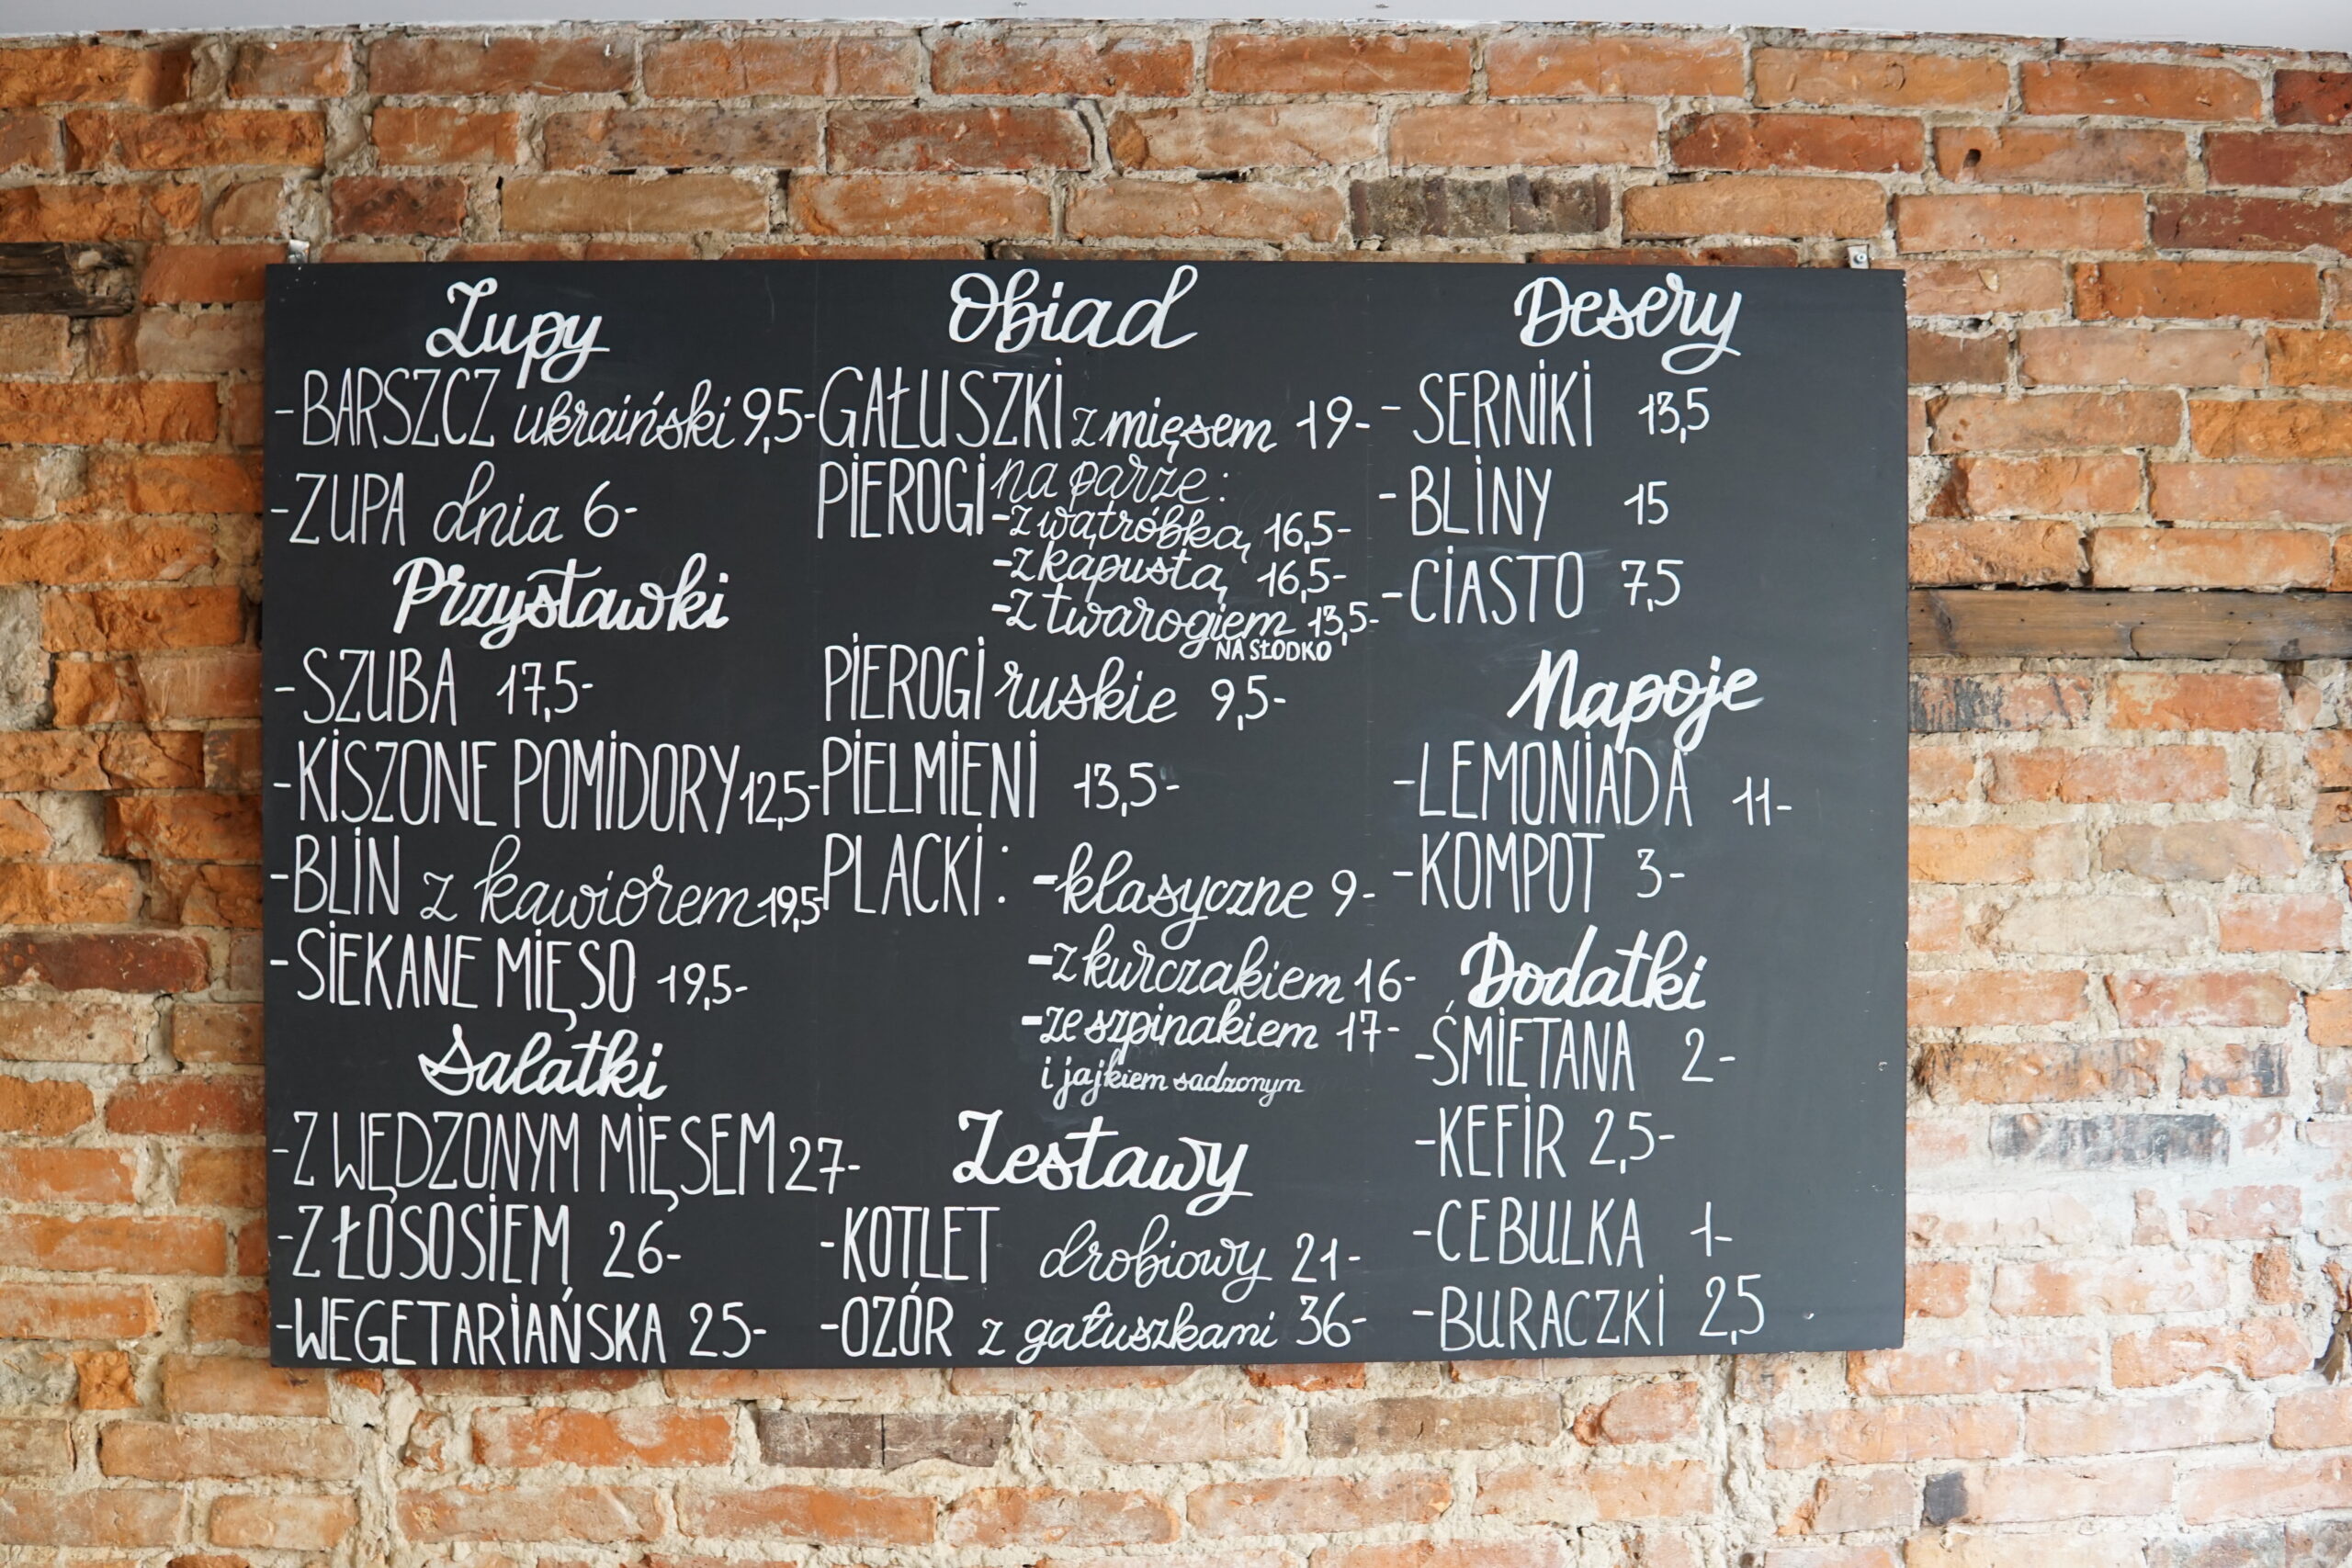 Zupy
-BARSZCZ ukraiński 9,5-
-ZUPA dnia 6-
Przystawki
-SZUBA 17,5-
-KISZONE POMIDORY 12,5-
-BLIN z kawiorem 19,5-
-SIEKANE MIĘSO 19,5-
Sałatki
-Z WĘDZONYM MIĘSEM 27-
-Z ŁOSOSIEM 26-
-WEGETARIAŃSKA 25-
Obiad
GAŁUSZKI z mięsem 19-
PIEROGI na parze:
-z wątróbką 16,5-
-z kapustą 16,5-
-z twarogiem 13,5-
NA SŁODKO
PIEROGI ruskie 9,5-
PIELMIENI 13,5-
PLACKI: -klasyczne 9-
-z kurczakiem 16-
-ze szpinakiem 17-
i jajkiem sadzonym
Zestawy
-KOTLET drobiowy 21-
-OZÓR z gałuszkami 36-
Desery
-SERNIKI 13,5
-BLINY 15
-CIASTO 7,5
Napoje
-LEMONIADA 11-
-KOMPOT 3-
Dodatki
-ŚMIETANA 2-
-KEFIR 2,5-
-CEBULKA 1-
-BURACZKI 2,5